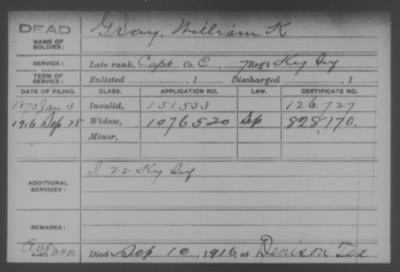 DEAD
NAME OF SOLDIER:
Gray, William K
SERVICE:
Late rank, Capt Co. C, 7 Reg't Ky Inf
TERM OF SERVICE:
Enlisted , 1 Discharged , 1
DATE OF FILING. CLASS. APPLICATION NO. LAW. CERTIFICATE NO.
1873 Jan 3 Invalid, 151,533 126,727
1916 Sep 25 Widow, 1076520 Sep 828,170.
Minor,
ADDITIONAL SERVICES:
I 22 Ky Inf
REMARKS:
Died Sep 10, 1916, at Denison Tex